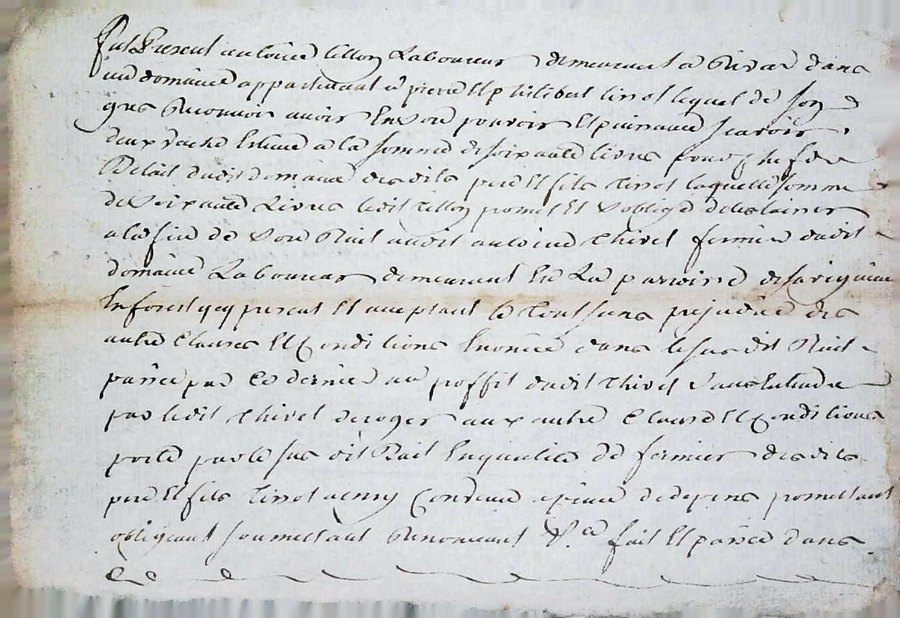 fut Present antoine tillon Laboureur demeurant a Rivas dans
un domaine appartenant a pierre Et philibert tissot lequel de son
gres Reconnoit avoir En son pouvoir Et puissance scavoir
deux vache Estimé a la somme de soixante livres pour
Belait dudit domaine desdits pere Et fils tissot laquelle somme
de soixante Livres ledit tillon promet Et s'oblige de
a la fin de son Bail audit antoine thivel fermier dudit
domaine Laboureur demeurant En La parroisse de
En forest icy present Et acceptant le tout sans prejudice des
autre Clauses Et Conditions Enoncé dans le susdit Bail
passé par Ce dernier au proffit dudit thivel sans Entendre
par ledit thivel deroger aux autre Clause Et Conditions
porté par le susdit Bail En qualité de fermier desdits
pere Et fils tissot a peine de depens promettant
obligeant soumettant Renonceant &.a fait Et passé dans